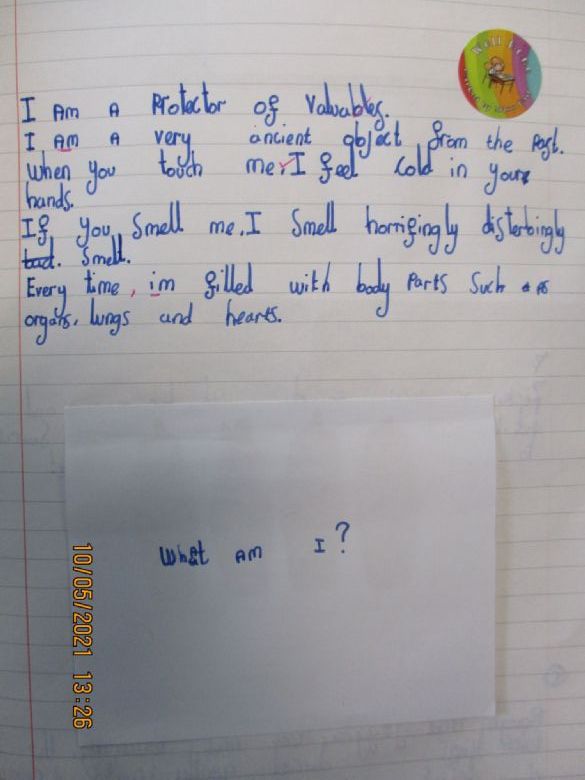 Well Done
I Am A Protector of Valuables.
I Am A very ancient object from the Past.
When you touch me, I feel Cold in your
hands.
If you Smell me, I Smell horrifingly disterbingly
bad. Smell.
Every time, im filled with body Parts Such as
organs, lungs and hearts.
What am I?
10/05/2021 13:26